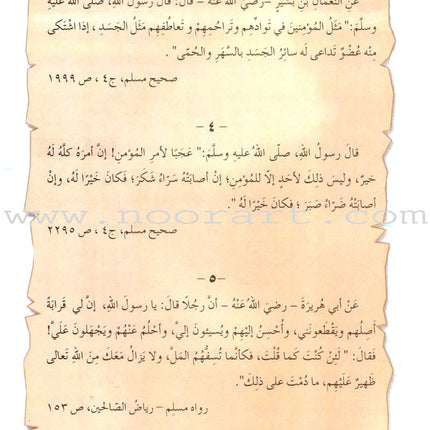 عَنِ النُّعْمانِ بْنِ بَشيرٍ –رضيَ اللهُ عَنهُ – قالَ: قالَ رسولُ اللهِ، صلّى اللهُ عليهِ
وسلَّمَ:" مَثَلُ المُؤمِنينَ في تَوادِّهِم وتَراحُمِهِمْ وَ تَعاطُفِهِم مَثَلُ الجَسَدِ ، إذا اشْتكى
مِنْه عُضْوٌ تَداعى لَه سائِرُ الجَسَدِ بالسَّهَرِ والحُمّى" .
صحيح مسلم، ج٤ ، ص ١٩٩٩
– ٤ –
قالَ رسولُ اللهِ، صلّى اللهُ عليهِ وسلَّمَ:" عَجَبًا لأمرِ المُؤمِنِ! إنَّ أمرَهُ كلَّهُ لَهُ
خيرٌ، وليسَ ذلِكَ لأحَدٍ إلاّ للمُؤمِنِ؛ إنْ أصابَتْهُ سَرّاءُ شَكَرَ؛ فكانَ خَيْرًا لَهُ، وإنْ
أصابَتْهُ ضَرّاءُ صَبَرَ ؛ فكانَ خَيْرًا لَهُ ".
www.noorart.com
صحيح مسلم، ج٤ ، ص ٢٢٩٥
– ٥ –
عَنْ أبي هُريرَةَ – رضيَ اللهُ عَنْهُ – أنَّ رجُلًا قالَ: يا رسولَ اللهِ، إنَّ لي قَرابَةً
أصِلُهم ويَقْطَعونَني، وأُحْسِنُ إليْهِمْ ويُسيئونَ إليَّ، وأحْلُمُ عَنْهُمْ ويَجْهَلونَ عَلَيَّ!
فَقالَ: " لَئِنْ كُنْتَ كَما قُلْتَ، فكَأنَّما تُسِفُّهُمُ المَلَّ، ولا يَزالُ مَعَكَ مِنَ اللهِ تَعالى
ظَهيرٌ عَلَيْهِم، ما دُمْتَ على ذلِكَ".
رواه مسلم – رياضُ الصّالحين، ص ١٥٣